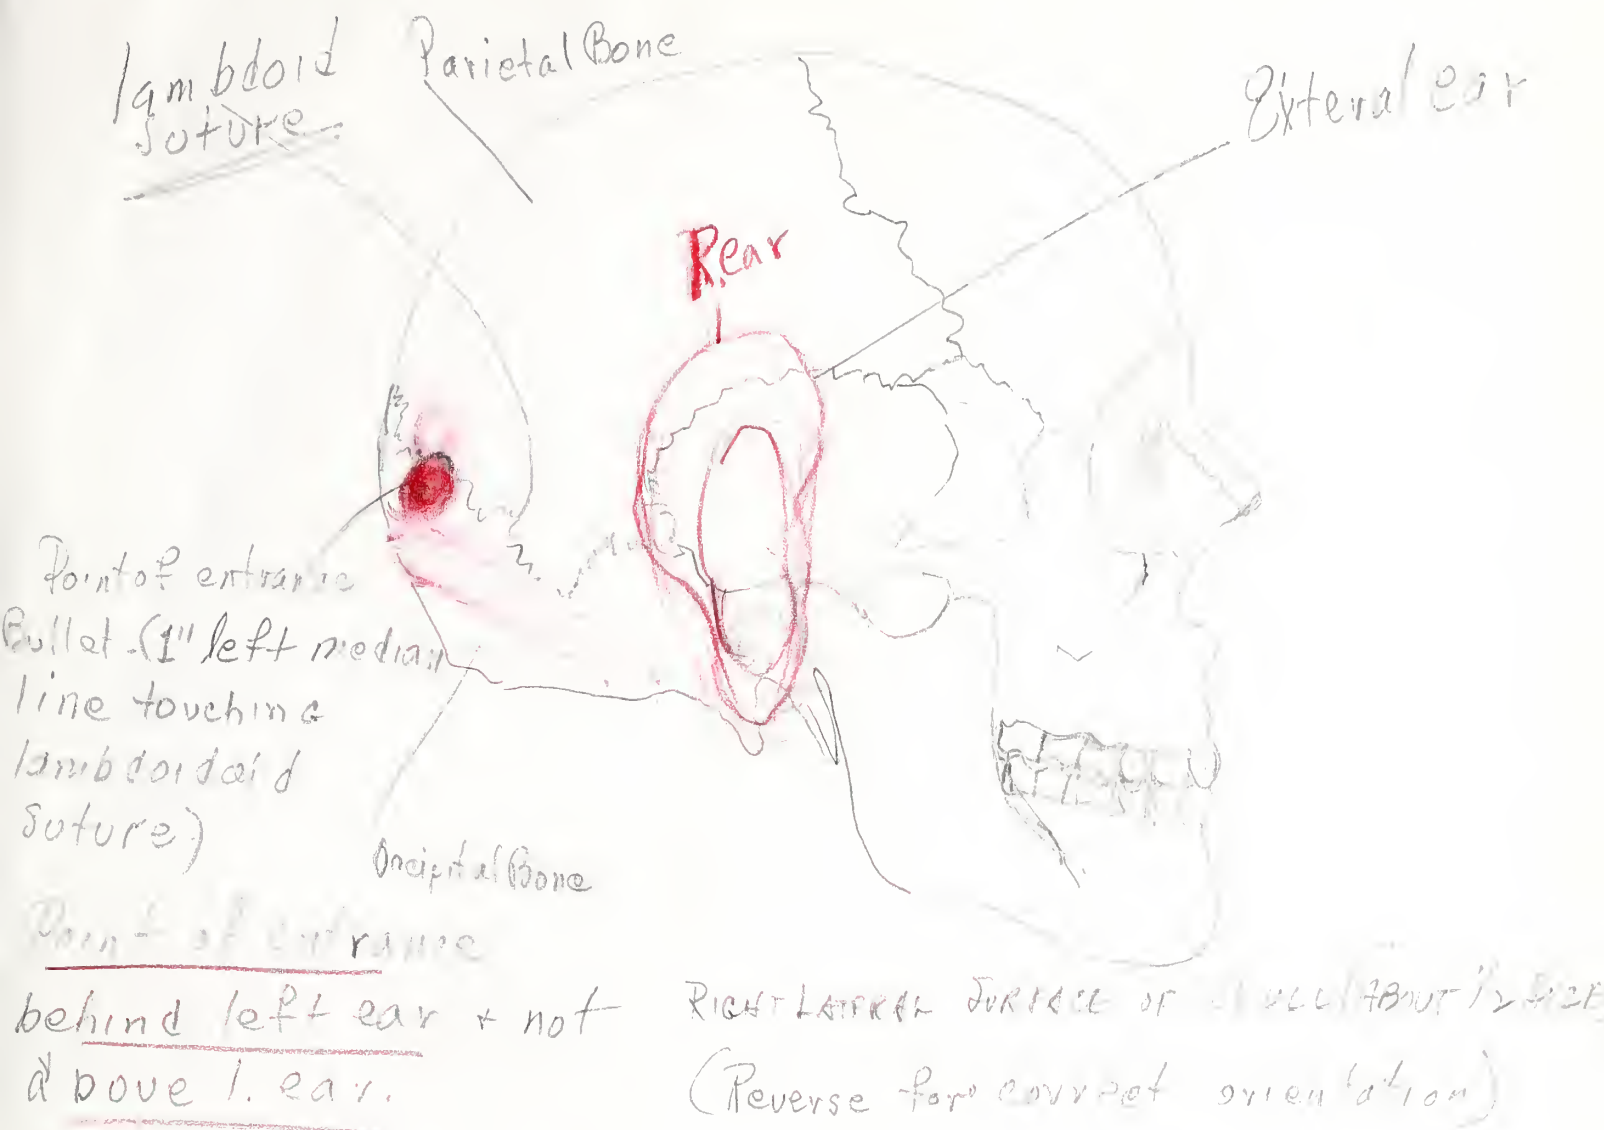 lambdoid
suture
Parietal Bone
Exteral ear
R. ear
Point of entrance
Bullet (1" left median
line touching
lambdoidaid
suture)
Occipital Bone
Point of entrance
behind left ear & not
above l. ear.
RIGHT LATERAL SURFACE OF SKULL (ABOUT 1/2 SIZE)
(Reverse for correct orientation)